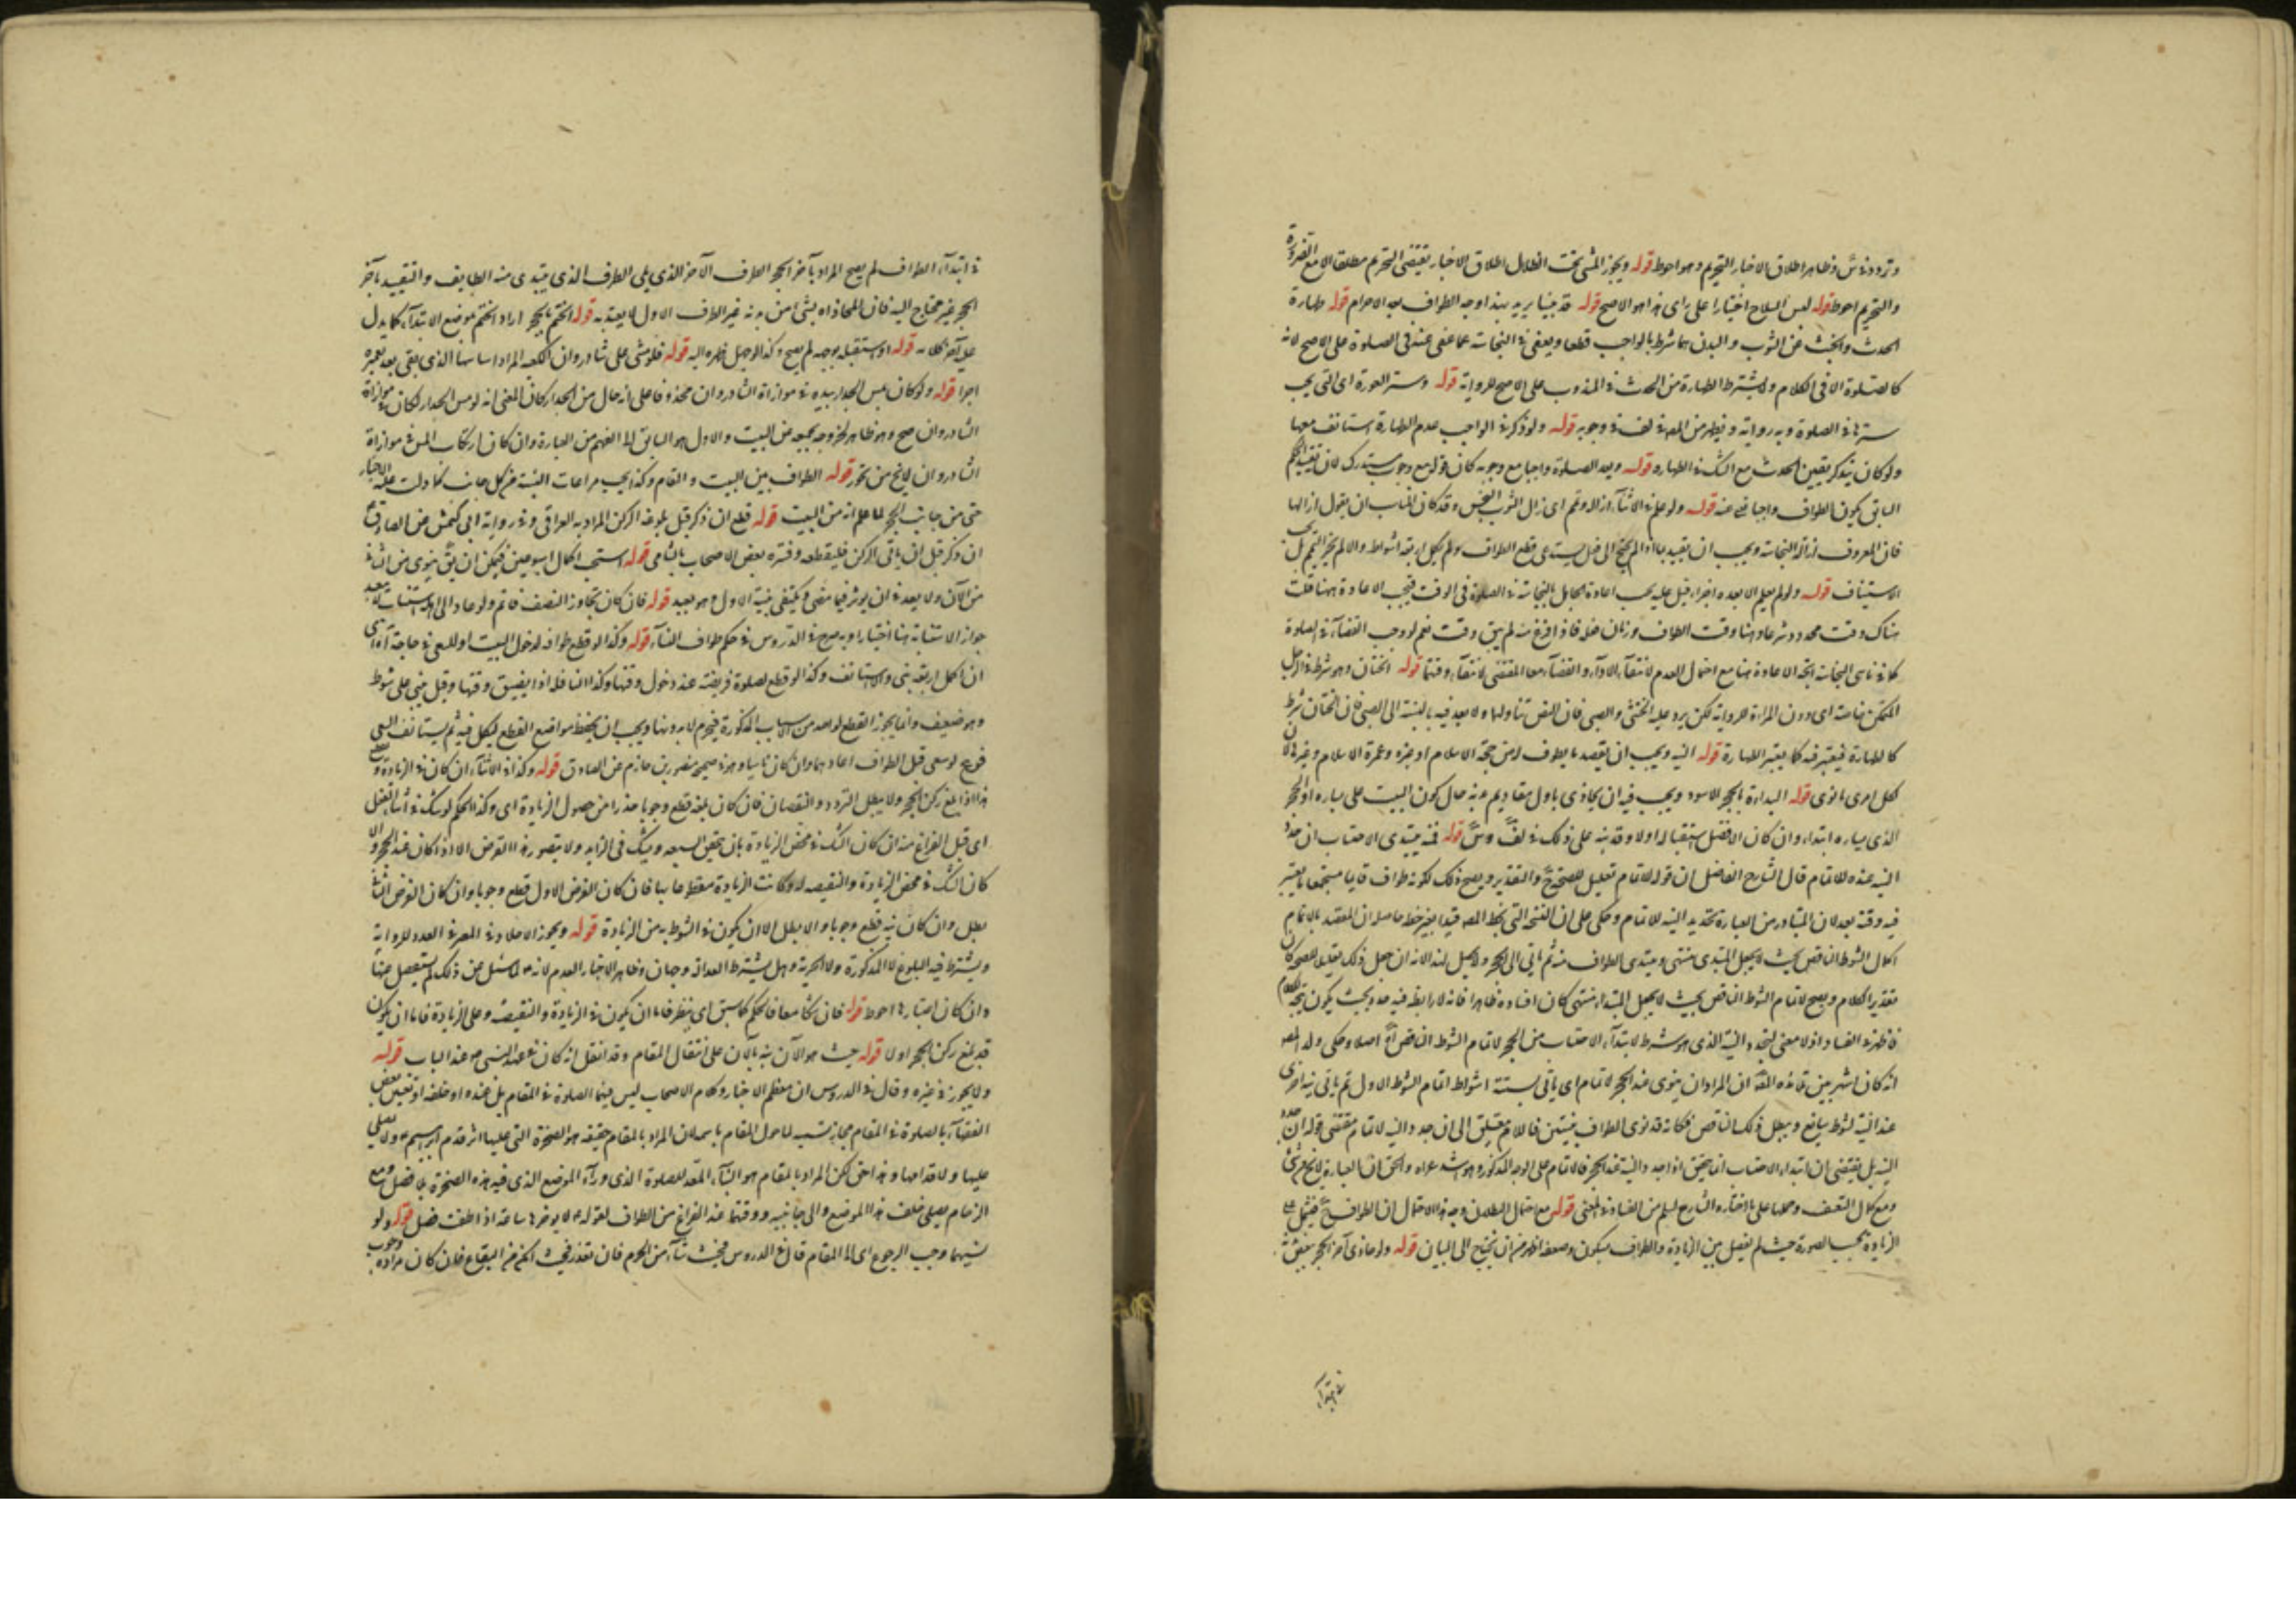 وتردد في س وظاهر اطلاق الاخبار التحريم وهو احوط قوله ويجوز المشي تحت الظلال اطلاق الاخبار يقتضى التحريم مطلقا الا مع الضرورة
والتحريم احوط قوله لبس السلاح اختيارا على راى هذا هو الاصح قوله قد بينا بهذا وجه الطواف بعد الاحرام قوله طهارة
الحدث والخبث عن الثوب والبدن هما شرط بالواجب قطعا ويعفى في النجاسة عما عفى عنه في الصلوة على الاصح لانه
كالصلوة الا في الكلام ولا يشترط الطهارة من الحدث في المندوب على الاصح للرواية قوله وستر العورة اى التى يجب
سترها في الصلوة وبه رواية من المص في لف في وجوبه قوله ولو ذكر في الواجب عدم الطهارة استانف معها
ولو كان تيقن الحدث مع الشك في الطهارة قوله ويعيد الصلوة واجبا مع وجوبه كان قوله مع وجوبه مستدرك لان تقييد الحكم
السابق بكون الطواف واجبا عنه قوله ولو علم في الاثناء ازاله وتم اى ازال الثوب النجس وقد كان المناسب ان يقول ازالها
فان المعروف ازالة النجاسة ويجب ان يقيد بما اذا لم يحتج الى فعل يستدعى قطع الطواف ولم يكمل اربعة اشواط والا لم يجز التتميم بل يجب
الاستيناف قوله ولو لم يعلم الا بعده اجزاء قيل عليه يجب اعادة الجاهل بالنجاسة في الصلوة في الوقت فتجب الاعادة هنا قلت
هناك وقت محدود شرعا وهنا وقت الطواف وزمان فعله فاذا فرغ منه لم يبق وقت نعم لو وجب القضاء في الصلوة
كما في ناسى النجاسة اتجه الاعادة هنا مع احتمال العدم لانتفاء الاداء والقضاء معا المقتضى لانتفاء وقتها قوله الختان وهو شرط في الرجل
المتمكن خاصة اى دون المراة للرواية لكن يرد عليه الخنثى والصبى فان النص تناولها ولا بعد فيه بالنسبة الى الصبى فان الختان شرط
كالطهارة فيعتبر فيه كما يعتبر الطهارة قوله النية ويجب ان يقصد ما يطوف له من حجة الاسلام او غيره وعمرة الاسلام وغيرها لان
لكل امرئ ما نوى قوله البداءة بالحجر الاسود ويجب فيه ان يحاذى باول مقاديم بدنه حال كون البيت على يساره اول الحجر
الذى يساره ابتداء وان كان الافضل استقباله اولا وقد نبه على ذلك في لف وس قوله فمنه يبتدى الاحتساب ان جدد
النية عنده للاتمام قال الشارح الفاضل ان قوله للاتمام تعليل للصحة والتقدير ويصح ذلك لكونه طواف قايما مستجمعا ما يعتبر
فيه وفيه بعد لان المتبادر من العبارة تجديد النية للاتمام وحكى على ان النسخة التى بخط المص قيدا بغير خط حاصله ان المعتقد بالاتمام
اكمال الشوط الناقص بحيث لا يجعل المبتدى منتهى ومبتدى الطواف منه ثم ياتى الى الحجر
بتقدير الكلام ويصح لاتمام الشوط الناقص بحيث لا يجعل المبتداء منتهى كان افساده ظاهرا فانه لا رابط فيه
فاظهر في الفساد اذ لا معنى لتجدد النية الذى هو شرط لابتداء الاحتساب من الحجر لاتمام الشوط الناقص اصلا وحكى ولد المص
انه كان اشهر بين تلامذه المص ان المراد ان ينوى عند الحجر للاتمام اى ياتى بستة اشواط اتمام الشوط الاول ثم ياتى بنية اخرى
عند النية لشوط سابع ويبطل ذلك الناقص فكانه قد نوى الطواف بنيتين فالاتمام متعلق الى ان جدد والنية للاتمام مقتضى قوله ان جدد
النية بل يقتضى ان ابتداء الاحتساب انما يتحقق اذا جدد النية عند الحجر فالاتمام على الوجه المذكور هو والحق ان العبارة لا تخ عن شئ
ومع كمال التعسف وحملها على ما اختاره الشارح ليسلم من الفساد في المعنى قوله مع احتمال البطلان وجه هذا الاحتمال ان الطواف
الزيادة بحسب الصورة حيث لم يفصل بين الزيادة والطواف بسكون وضعفه اظهر من ان يحتاج الى البيان قوله ولو حاذى آخر الحجر ببعض بدنه
في ابتداء
في ابتداء الطواف لم يصح المراد بآخر الحجر الطرف الآخر الذى يلى الطرف الذى يبتدى منه الطايف والتقييد بآخر
الحجر غير محتاج اليه فان المحاذاة بشئ من بدنه غير الطرف الاول لا يعتد به قوله الختم بالحجر اراد الختم بموضع الابتداء كما يدل
عليه آخر كلامه قوله او استقبله بوجهه لم يصح وكذا لو جعل ظهره اليه قوله فلو مشى على شاذروان الكعبة المراد اساسها الذى بقى بعد تعميره
اجزا قوله ولو كان يمس الجدار بيده في موازاة الشاذروان محذوفا على انه حال من الجدار كان المعنى انه لو مس الجدار لكان في موازاة
الشاذروان صح وهو ظاهر لخروجه بجميعه عن البيت والاول هو السابق الى الفهم من العبارة وان كان ارتكاب المس في موازاة
الشاذروان لا يخ من تجوز قوله الطواف بين البيت والمقام وكذا يجب مراعات النسبة من كل جانب كما دلت عليه الاخبار
حتى من جانب الحجر لما علم انه من البيت قوله قطع ان ذكر قبل بلوغه الركن المراد به العراقى وفي رواية ابى كهمش عن الصادق ع
ان ذكر قبل ان ياتى الركن فليقطعه وفسره بعض الاصحاب بالشامى قوله استحب اكمال اسبوعين فيمكن ان ينوى من الثانى
من الآن ولا يبعد ان يؤثر فيما مضى ويكتفى بنية الاول وهو بعيد قوله فان كان تجاوز النصف فاتم ولو عاد الى اهله استناب
جواز الاستنابة هنا اختيارا وبه صرح في الدروس في حكم طواف النساء قوله وكذا لو قطع طوافه لدخول البيت او للسعى في حاجة اى
ان اكمل اربعة بنى والا استانف وكذا لو قطع لصلوة فريضة عند دخول وقتها وكذا النافلة اذا يضيق وقتها وقيل يبنى على شوط
وهو ضعيف وانما يجوز القطع لواحد من الاسباب المذكورة فيحرم لا بدونها ويجب ان يحفظ مواضع القطع ليكمل فيه ثم يستانف السعى
فرع لو سعى قبل الطواف اعادهما وان كان ناسيا وهو في صحيحة منصور بن حازم عن الصادق قوله وكذا في الاثناء ان كان في الزيادة
هذا اذا بلغ ركن الحجر ولا يبطل التردد والنقصان فان كان بعده قطع وجوبا حذرا من حصول الزيادة اى وكذا الحكم لو شك في اثناء الفعل
اى قبل الفراغ منه ان كان الشك في محض الزيادة بان يتيقن السبعة ويشك في الزايد ولا يتصور هذا الفرض الا اذا كان عند الحجر والا
كان الشك في محض الزيادة والنقيصة ولو كانت الزيادة فان كان الفرض الاول قطع وجوبا وان كان الفرض الثانى
بطل وان كان قطع وجوبا والا بطل الا ان يكون في الشوط من الزيادة قوله ويجوز الاخلاد في المعرفة العدد للرواية
ويشترط فيه البلوغ لا الذكورة ولا الحرية وهل يشترط العدالة وجهان وظاهر الاخبار العدم لانه ع لما سئل عن ذلك لم يستفصل عنها
وان كان اعتبارها احوط قوله فان شكا معا فالحكم كما سبق اى ينظر فاما ان يكون في الزيادة والنقيصة وعلى الزيادة فاما ان يكون
قد بلغ ركن الحجر او لا قوله حيث هو الآن نبه بالآن على انتقال المقام وقد نقل انه كان في عهد النبى ص عند الباب قوله
ولا يجوز في غيره وقال في الدروس ان معظم الاخبار وكلام الاصحاب ليس فيهما الصلوة في المقام بل عنده او خلفه وتعيين بعض
الفقهاء بالصلوة في المقام مجاز تسمية لما حول المقام باسمه لان المراد بالمقام حقيقة هو الصخرة التى عليها اثر قدم ابرهيم ع ولا يصلى
عليها ولا قدامها وهذا حق لكن المراد بالمقام هو البناء المعد للصلوة الذى وراء الموضع الذى فيه هذه الصخرة بلا فصل ومع
الزحام يصلى خلف هذا الموضع والى جانبيه ووقتهما عند الفراغ من الطواف لقوله ع لا يوخرها ساعة اذا طفت فصل قوله ولو
نسيهما وجب الرجوع اى الى المقام قال في الدروس فحيث شاء من الحرم فان تعذر فحيث امكن من البقاع فان كان مراده وجوب